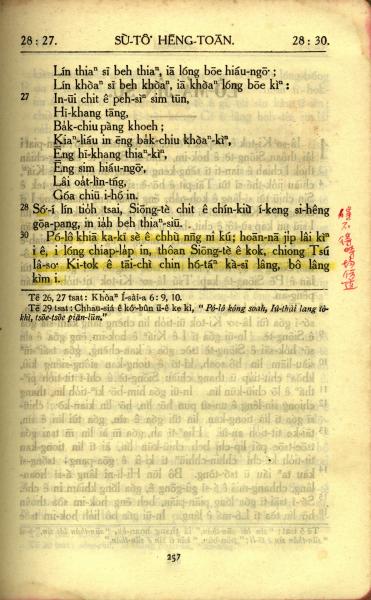 28 : 27. SÙ-TÔ͘ HĒNG-TOĀN. 28 : 30.
Lín thiaⁿ sī beh thiaⁿ, iā lóng bōe hiáu-ngō͘ ;
Lín khòaⁿ sī beh khòaⁿ, iā khòaⁿ lóng bōe kìⁿ :
27 In-ūi chit ê peh-sìⁿ sim tūn,
Hi-khang tāng,
Ba̍k-chiu pàng khoeh ;
Kiaⁿ-liáu in ēng ba̍k-chiu khòaⁿ-kìⁿ,
Ēng hī-khang thiaⁿ-kìⁿ,
Ēng sim hiáu-ngō͘,
Lâi oa̍t-lìn-tńg,
Góa chiū i-hó in.
28 Só͘-í lín tio̍h tsai, Siōng-tè chit ê chín-kiù í-keng sì-hêng
gōa-pang, in ia̍h beh thiaⁿ-siū.
30 Pó-lô khiā ka-kī sè ê chhù nn̄g nî kú; hoān-nā ji̍p lâi kìⁿ
i ê, i lóng chiap-la̍p in, thôan Siōng-tè ê kok, chiong Tsú
Iâ-so͘ Ki-tok ê tāi-chì chin hó-táⁿ kà-sī lâng, bô lâng
kìm i.
Tē 26, 27 tsat : Khòaⁿ Í-sài-a 6 : 9, 10.
Tē 29 tsat : Chhau-siá ê kó͘-bûn ū-ê ke kì, “ Pó-lô kóng soah, Iû-thài lang iō-
khì, tsōe-tsōe piān-lūn.”
257